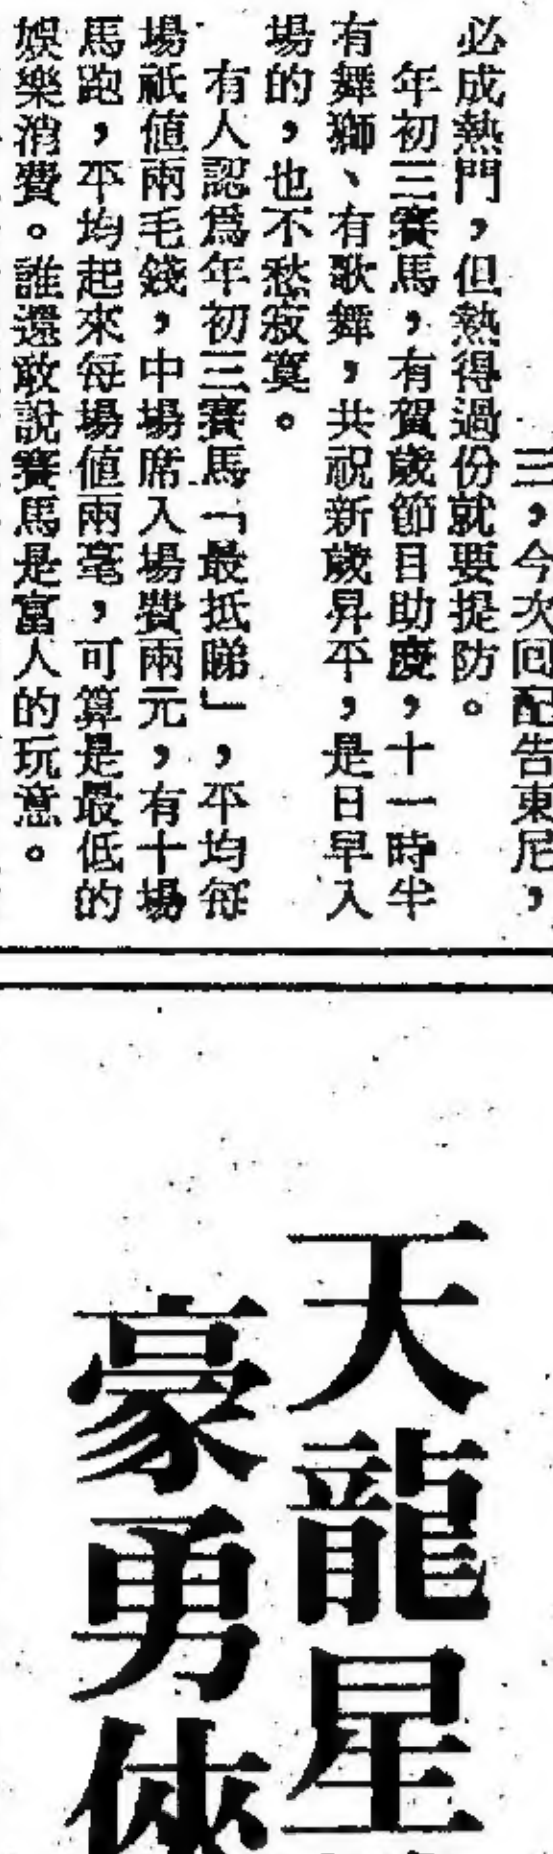 三，今次回配告東尼，
必成熱門，但熱得過份就要提防。
年初三賽馬，有賀歲節目助慶，十一時半
有舞獅、有歌舞，共祝新歲昇平，是日早入
場的，也不愁寂寞。
有人認爲年初三賽馬「最抵睇」，平均每
場祇值兩毛錢，中場席入場費兩元，有十場
馬跑，平均起來每場值兩毫，可算是最低的
娛樂消費。誰還敢說賽馬是富人的玩意。
天龍星
豪勇俠